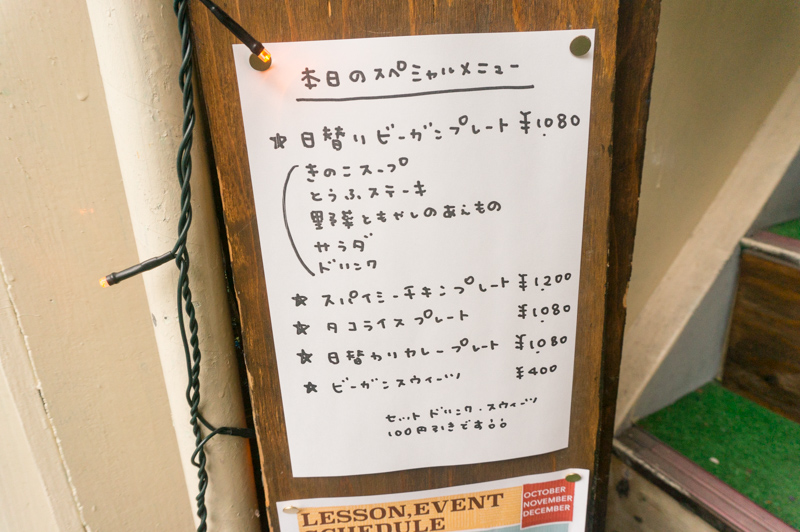 本日のスペシャルメニュー
☆ 日替りビーガンプレート ¥1080
きのこスープ
とうふステーキ
野菜ともやしのあえもの
サラダ
ドリンク
☆ スパイシーチキンプレート ¥1200
☆ タコライスプレート ¥1080
☆ 日替わりカレープレート ¥1080
☆ ビーガンスウィーツ ¥400
セット ドリンク・スウィーツ
100円引きです
LESSON,EVENT
SCHEDULE
OCTOBER
NOVEMBER
DECEMBER